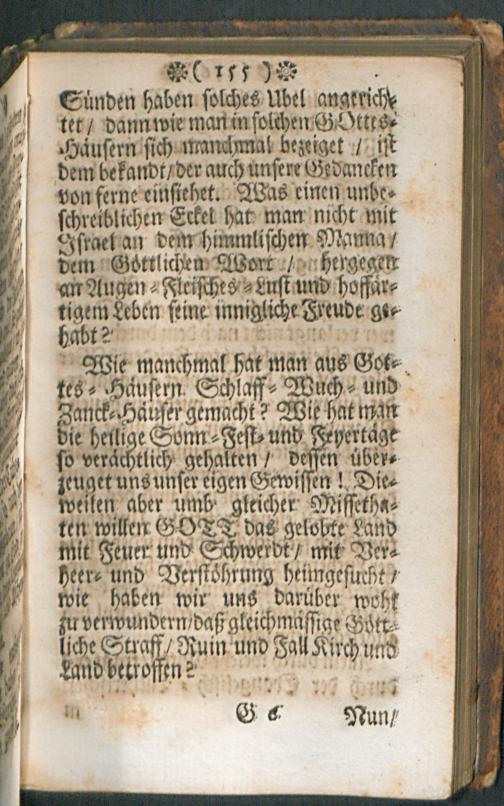 ( 155 )
Sünden haben solches Ubel angerich-
tet / dann wie man in solchen GOttes-
Häusern sich manchmal bezeiget / ist
dem bekandt / der auch unsere Gedancken
von ferne einsiehet. Was einen unbe-
schreiblichen Eckel hat man nicht mit
Israel an dem himmlischen Manna /
dem Göttlichen Wort / hergegen
an Augen-Fleisches-Lust und hoffär-
tigem Leben seine innigliche Freude ge-
habt?
Wie manchmal hat man aus Got-
tes-Häusern Schlaff-Wuch- und
Zanck-Häuser gemacht? Wie hat man
die heilige Sonn-Fest- und Feyertäge
so verächtlich gehalten / dessen über-
zeuget uns unser eigen Gewissen! Die-
weilen aber umb gleicher Missetha-
ten willen GOTT das gelobte Land
mit Feuer und Schwerdt / mit Ver-
heer- und Verstöhrung heimgesucht /
wie haben wir uns darüber wohl
zu verwundern / daß gleichmässige Gött-
liche Straff / Ruin und Fall Kirch und
Land betroffen?
G Nun /